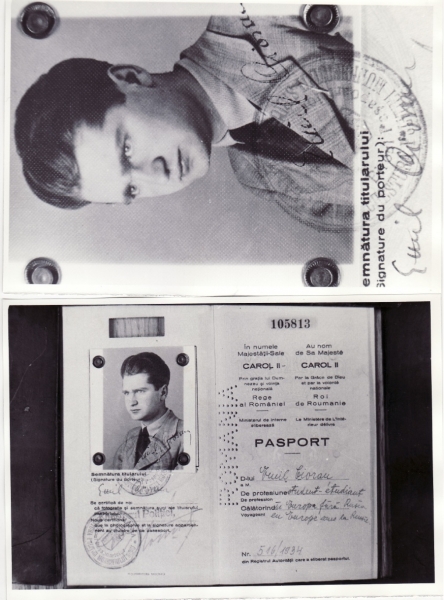 emnătura titularului
Signature du porteur):
Emil Cioran
105813
În numele
Majestății-Sale
CAROL II
Prin grația lui Dum-
nezeu și voința
națională
Rege
al României
Ministerul de Interne
eliberează
Au nom
de Sa Majesté
CAROL II
Par la Grâce de Dieu
et par la volonté
nationale
Roi
de Roumanie
Le Ministère de l'Inté-
rieur délivre
PASPORT
D-lui Emil Cioran
à M.
De profesiune student-étudiant
De profession
Călătorind în Europa fără Rusia
Voyageant en Europe sans la Russie
Nr. 516/1934
din Registrul Autorității care a eliberat pașaportul.
Semnătura titularului
(Signature du porteur)
Emil Cioran
Se certifică de noi
că fotografia și semnătura sunt ale titularului
Nous certifions
que la photographie et la signature apposée
sont du titulaire de ce passeport.